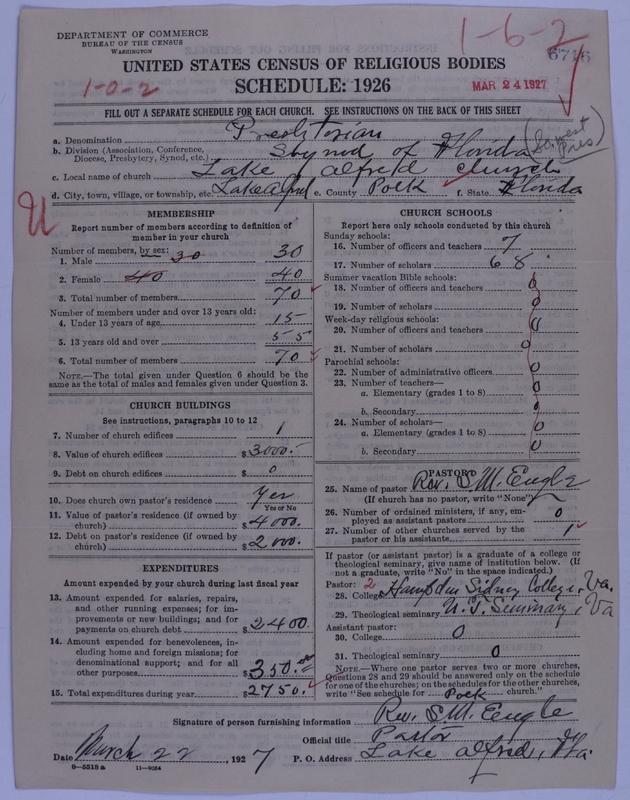 DEPARTMENT OF COMMERCE
BUREAU OF THE CENSUS
WASHINGTON
1-6-2
6716
1-0-2
UNITED STATES CENSUS OF RELIGIOUS BODIES
SCHEDULE: 1926
MAR 24 1927
FILL OUT A SEPARATE SCHEDULE FOR EACH CHURCH. SEE INSTRUCTIONS ON THE BACK OF THIS SHEET
a. Denomination Presbyterian
b. Division (Association, Conference, Diocese, Presbytery, Synod, etc.) Synod of Florida
c. Local name of church Lake Alfred Church
d. City, town, village, or township, etc. Lake Alfred e. County Polk f. State Florida
MEMBERSHIP
Report number of members according to definition of
member in your church
Number of members, by sex:
1. Male 30 30
2. Female 40 40
3. Total number of members 70
Number of members under and over 13 years old:
4. Under 13 years of age 15
5. 13 years old and over 55
6. Total number of members 70
NOTE.—The total given under Question 6 should be
same as the total of males and females given under Question 3.
CHURCH BUILDINGS
See instructions, paragraphs 10 to 12
7. Number of church edifices 1
8. Value of church edifices $3000.-
9. Debt on church edifices $ 0
10. Does church own pastor's residence Yes
Yes or No
11. Value of pastor's residence (if owned by
church) $4000.
12. Debt on pastor's residence (if owned by
church) $2000.
EXPENDITURES
Amount expended by your church during last fiscal year
13. Amount expended for salaries, repairs,
and other running expenses; for im-
provements or new buildings; and for
payments on church debt $2400.
14. Amount expended for benevolences, in-
cluding home and foreign missions; for
denominational support; and for all
other purposes $350.
15. Total expenditures during year $2750.
CHURCH SCHOOLS
Report here only schools conducted by this church
Sunday schools:
16. Number of officers and teachers 7
17. Number of scholars 68
Summer vacation Bible schools:
18. Number of officers and teachers 0
19. Number of scholars 0
Week-day religious schools:
20. Number of officers and teachers 0
21. Number of scholars 0
Parochial schools:
22. Number of administrative officers 0
23. Number of teachers—
a. Elementary (grades 1 to 8) 0
b. Secondary 0
24. Number of scholars—
a. Elementary (grades 1 to 8) 0
b. Secondary 0
PASTOR
25. Name of pastor Rev. S. M. Engle
(If church has no pastor, write "None")
26. Number of ordained ministers, if any, em-
ployed as assistant pastors 0
27. Number of other churches served by the
pastor or his assistants 1
If pastor (or assistant pastor) is a graduate of a college or
theological seminary, give name of institution below. (If
not a graduate, write "No" in the space indicated.)
Pastor: 2
28. College Hampden Sidney College, Va.
29. Theological seminary U. T. Seminary, Va
Assistant pastor:
30. College 0
31. Theological seminary 0
NOTE.—Where one pastor serves two or more churches,
Questions 28 and 29 should be answered only on the schedule
for one of the churches; on the schedules for the other churches,
write "See schedule for Polk church."
Signature of person furnishing information Rev. S. M. Engle
Official title Pastor
Date March 22, 1927 P. O. Address Lake Alfred, Fla.
8-5518 a 11-9064